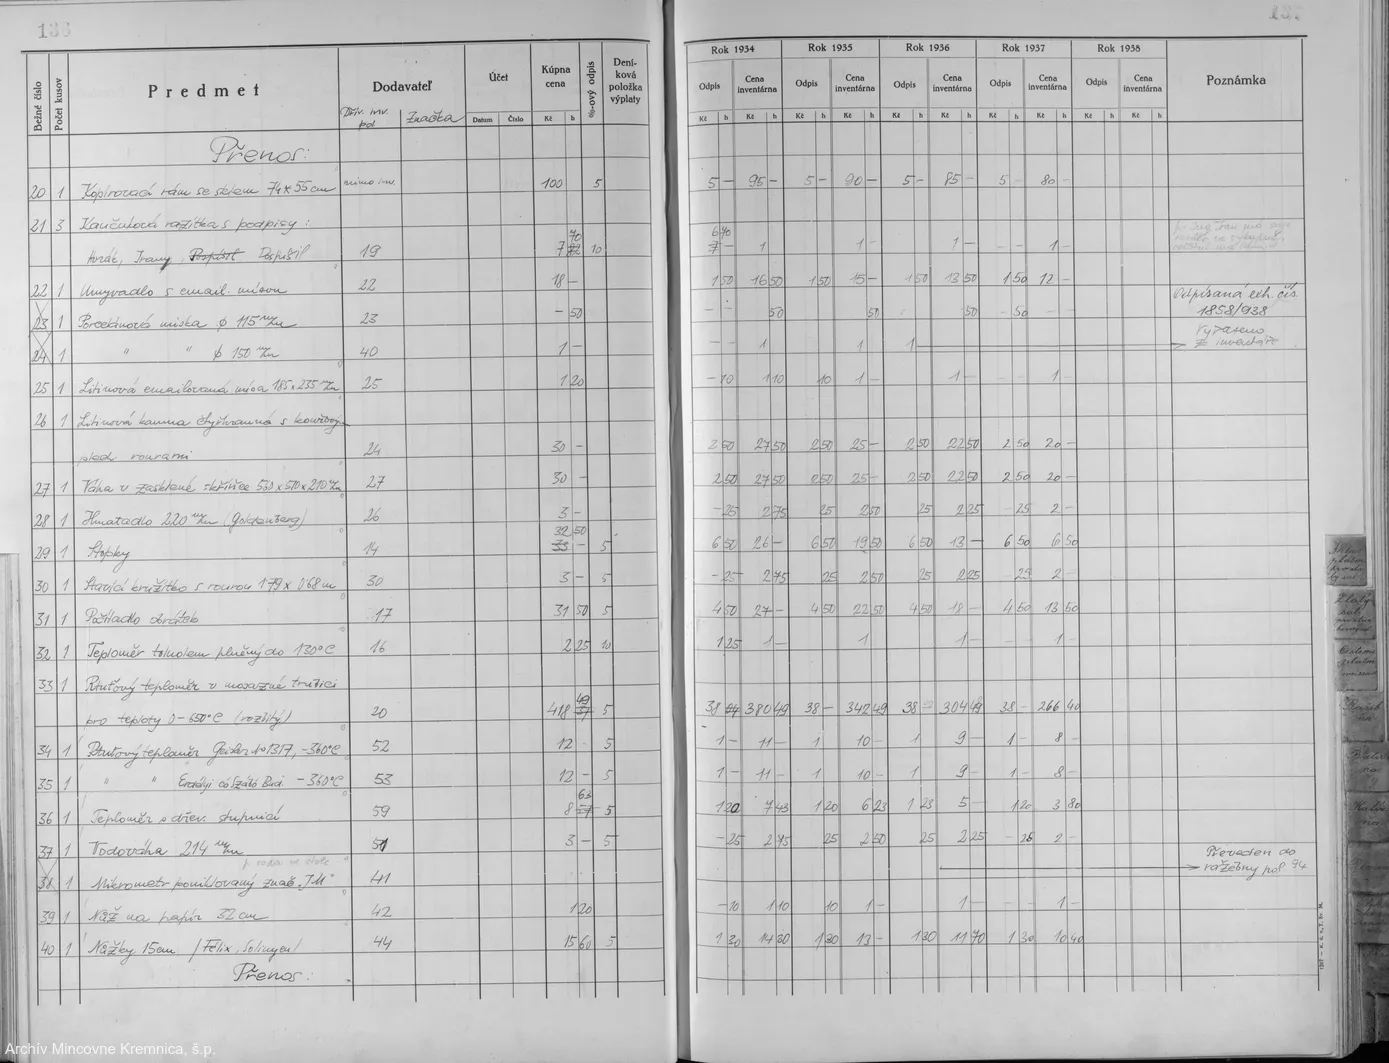 136
137
Bežné číslo
Počet kusov
Predmet
Dodavateľ
Účet
Datum Číslo
Kúpna cena
Kč h
%-ový odpis
Deníková položka výplaty
Rok 1934 Rok 1935 Rok 1936 Rok 1937 Rok 1938
Odpis Cena inventárna Odpis Cena inventárna Odpis Cena inventárna Odpis Cena inventárna Odpis Cena inventárna
Kč h Kč h Kč h Kč h Kč h Kč h Kč h Kč h Kč h Kč h
Poznámka
inv. Značka
Přenos:
20 1 Kopírovací rám se sklem 74 x 55 cm mimo inv. 100 5 5 - 95 - 5 - 90 - 5 - 85 - 5 - 80 -
21 3 Kaučuková razítka s podpisy:
70 6 70
Pospíšil 19 7 72 10 7 - 1 1 - 1 - 1 -
22 1 Umyvadlo s email. mísou 22 18 - 1 50 16 50 1 50 15 - 1 50 13 50 1 50 12 -
Odpísaná exh. čís.
23 1 Porcelánová miska ф 115 m/m 23 - 50 - - 50 50 50 - 50 1858/938
24 1 " " ф 150 m/m 40 1 - 1 1 1 Vypaseno z inventáře
25 1 Litinová emailovaná mísa 185 x 235 m/m 25 1 20 - 10 1 10 10 1 - 1 - 1 -
26 1 Litinová kamna čtyřhranná s
rourami 24 30 - 2 50 27 50 2 50 25 - 2 50 22 50 2 50 20 -
27 1 Váha v zasklené skříňce 530 x 510 x 210 m/m 27 30 - 2 50 27 50 2 50 25 - 2 50 22 50 2 50 20 -
28 1 Hmatadlo 220 m/m (Goldenberg) 26 3 - - 25 2 75 25 2 50 25 2 25 - 25 2 -
32 50
29 1 Stopky 14 33 - 5 6 50 26 - 6 50 19 50 6 50 13 - 6 50 6 50
30 1 Stavicí s rourou 179 x 068 m 30 3 - 5 - 25 2 75 25 2 50 25 2 25 - 25 2 -
31 1 Počítadlo obrátek 17 31 50 5 4 50 27 - 4 50 22 50 4 50 18 - 4 50 13 50
32 1 Teploměr toluolem plněný do 130°C 16 2 25 10 1 25 1 - 1 1 - 1 -
33 1 Rtuťový teploměr v mosazné trubici
49
pro teploty 0-650°C (rozbitý) 20 418 37 5 38 380 49 38 - 342 49 38 - 304 49 38 - 266 40
34 1 Rtuťový teploměr No 1317, -360°C 52 12 - 5 1 - 11 - 1 10 - 1 9 - 1 - 8 -
35 1 " " -360°C 53 12 - 5 1 - 11 - 1 10 - 1 9 - 1 - 8 -
63
36 1 Teploměr s dřev. stupnicí 59 8 5 1 20 7 43 1 20 6 23 1 23 5 - 1 20 3 80
37 1 Vodováha 214 m/m 51 3 - 5 - 25 2 75 25 2 50 25 2 25 - 25 2 -
Převeden do
38 1 Mikrometr poniklovaný znač. "J.M" 41 ražebny pol 74
39 1 Nůž na papír 32 cm 42 1 20 - 10 1 10 10 1 - 1 - 1 -
40 1 Nůžky 15 cm (Felix, Solingen) 44 15 60 5 1 30 14 30 1 30 13 - 1 30 11 70 1 30 10 40
Přenos:
Archív Mincovne Kremnica, š.p.